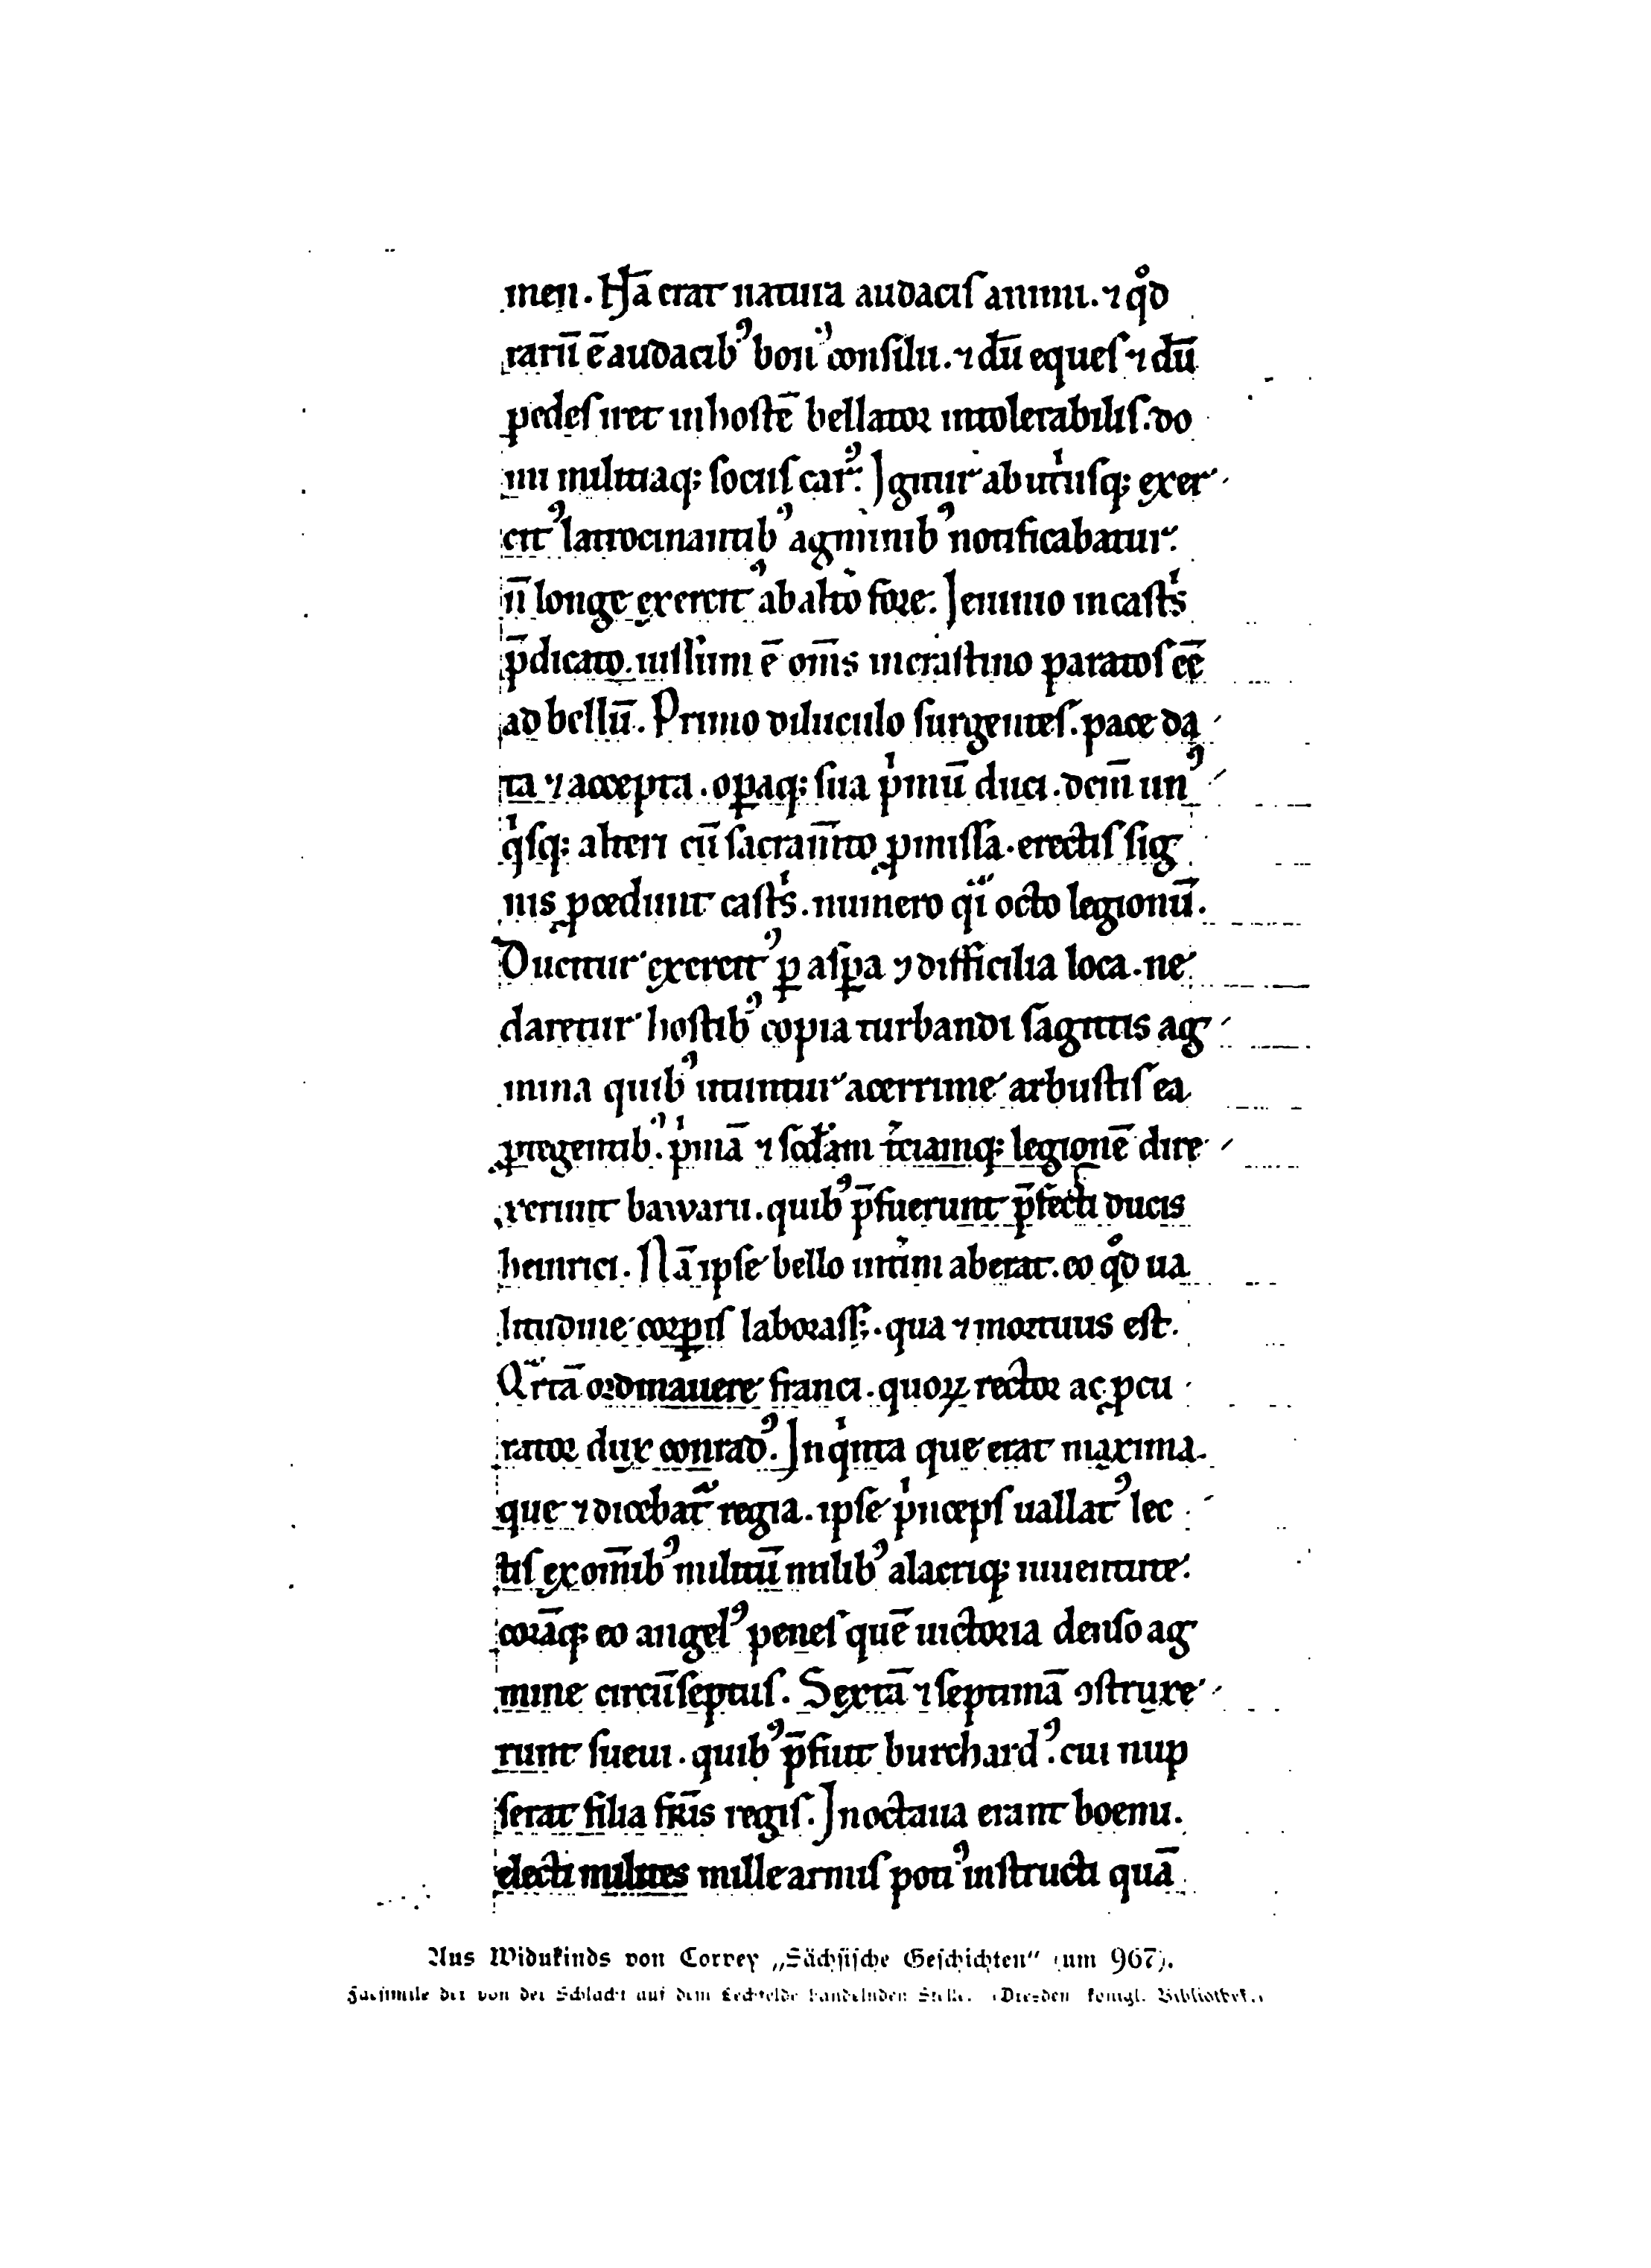 men. Nā erat natura audacis animi. ⁊ qͦd
rarū ē audacib᾽ boni᾽ consilii. ⁊ dū eques ⁊ dū
pedes iret in hostē bellator intolerabilis. do
mi militiaq; sociis car᾽. Igitur ab utͥusq; exer
cit᾽ latrocinantib᾽ agminib᾽ notificabatur.
n̄ longe exercit᾽ ab altͦo fore. Ieiunio in castͥs
p̄dicato. iussum ē om̄s in crastino paratos eē
ad bellū. Primo diluculo surgentes. pace da
ta ⁊ accepta. oꝑaq; sua pͥmū duci. dein̄ un᾽
qͥsq; alteri cū sacram̄to ꝓmissa. erectis sig
nis ꝓcedunt castͥs. numero qͣi octo legionū.
Ducitur exercit᾽ ꝑ asꝑa ⁊ difficilia loca. ne
daretur hostib᾽ copia turbandi sagittis ag
mina quib᾽ utuntur acerrime arbustis ea
ꝓtegentib᾽. pͥmā ⁊ scd̄am tͥciamq; legionē dire
xerunt bawarii. quib᾽ p̄fuerunt p̄fecti ducis
heinrici. Nā ipse bello int̄im aberat. eo qͦd ua
litudine corꝑis laborass;. qua ⁊ mortuus est.
Qͣrtā ordinauere franci. quoꝝ rector ac ꝓcu
rator dux conrad᾽. In qͥnta que erat maxima.
que ⁊ dicebat᷑ regia. ipse pͥnceps uallat᾽ lec
tis ex om̄ib᾽ militū milib᾽ alacriq; iuuentute.
corāq; eo angel᾽ penes quē uictoria denso ag
mine circūseptus. Sextā ⁊ septimā ꝯstruxe
runt sueui. quib᾽ p̄fuit burchard᾽. cui nup
serat filia fr̄is regis. In octaua erant boemi.
electi milites mille armis poti᾽ instructi quā
Aus Widukinds von Corvey „Sächsische Geschichten“ (um 967).
Facsimile der von der Schlacht auf dem Lechfelde handelnden Stelle. (Dresden königl. Bibliothek.)